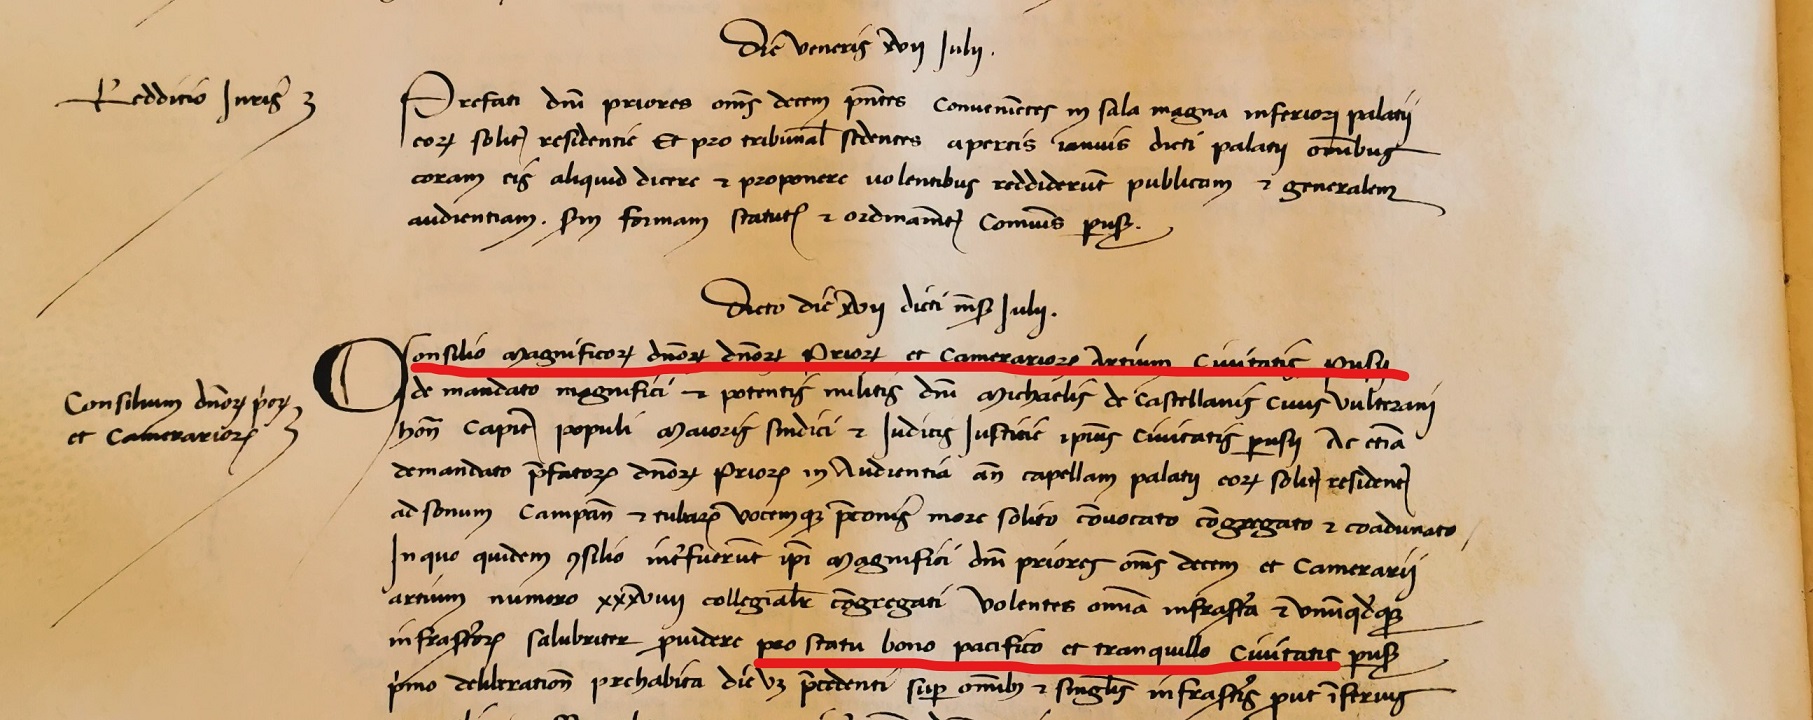 Die veneris xvii Julii.
Redditio Juris
Prefati dñi priores oms decem pñtes Convenientes in sala magna inferiori palatii
eorꝝ solitꝭ residentie Et pro tribunal sedentes apertis ianuis dicti palatii omibus
coram eis aliquid dicere ⁊ proponere volentibus reddiderũt publicam ⁊ generalem
audientiam. Sm formam statutꝭ ⁊ ordinamtꝭ Comuis pus.
Dicto die xvii dicti mẽs Julii.
Consilium dñorꝝ pꝛioꝝ
et Camerariorꝝ
Consilio Magnificorꝝ dñorꝝ dñorꝝ Priorꝝ et Camerariorꝝ Artium Civitatis Pusii
de mandato magnifici ⁊ potentis militis dñi Michaelis de Castellanis Civis Vulterani
hoñ Capitꝭ populi Maioris sindici ⁊ Judicis Justitie ipius Civitatis pusii Ac etiã
de mandato p̃fatorꝝ dñorꝝ Priorꝝ in Audientia añ capellam palatii eorꝝ solitꝭ residentꝭ
ad sonum Campañ ⁊ tubarꝝ vocemqꝫ p̃conis more solito cõvocato cõgregato ⁊ coadunato
In quo quidem ꝯsilio int̃fuerũt ipi Magnifici dñi priores oms decem et Camerarii
artium numero xxxviiii collegialr cõgregati Volentes omia infrascta ⁊ unũqdqꝫ
infrasctorꝝ salubriter ꝓuidere pro statu bono pacifico et tranquillo Civitatis pus
p̃mo deliberationẽ prehabita die p̃cedenti sup omibꝫ ⁊ singlis infrasctis put ĩferius